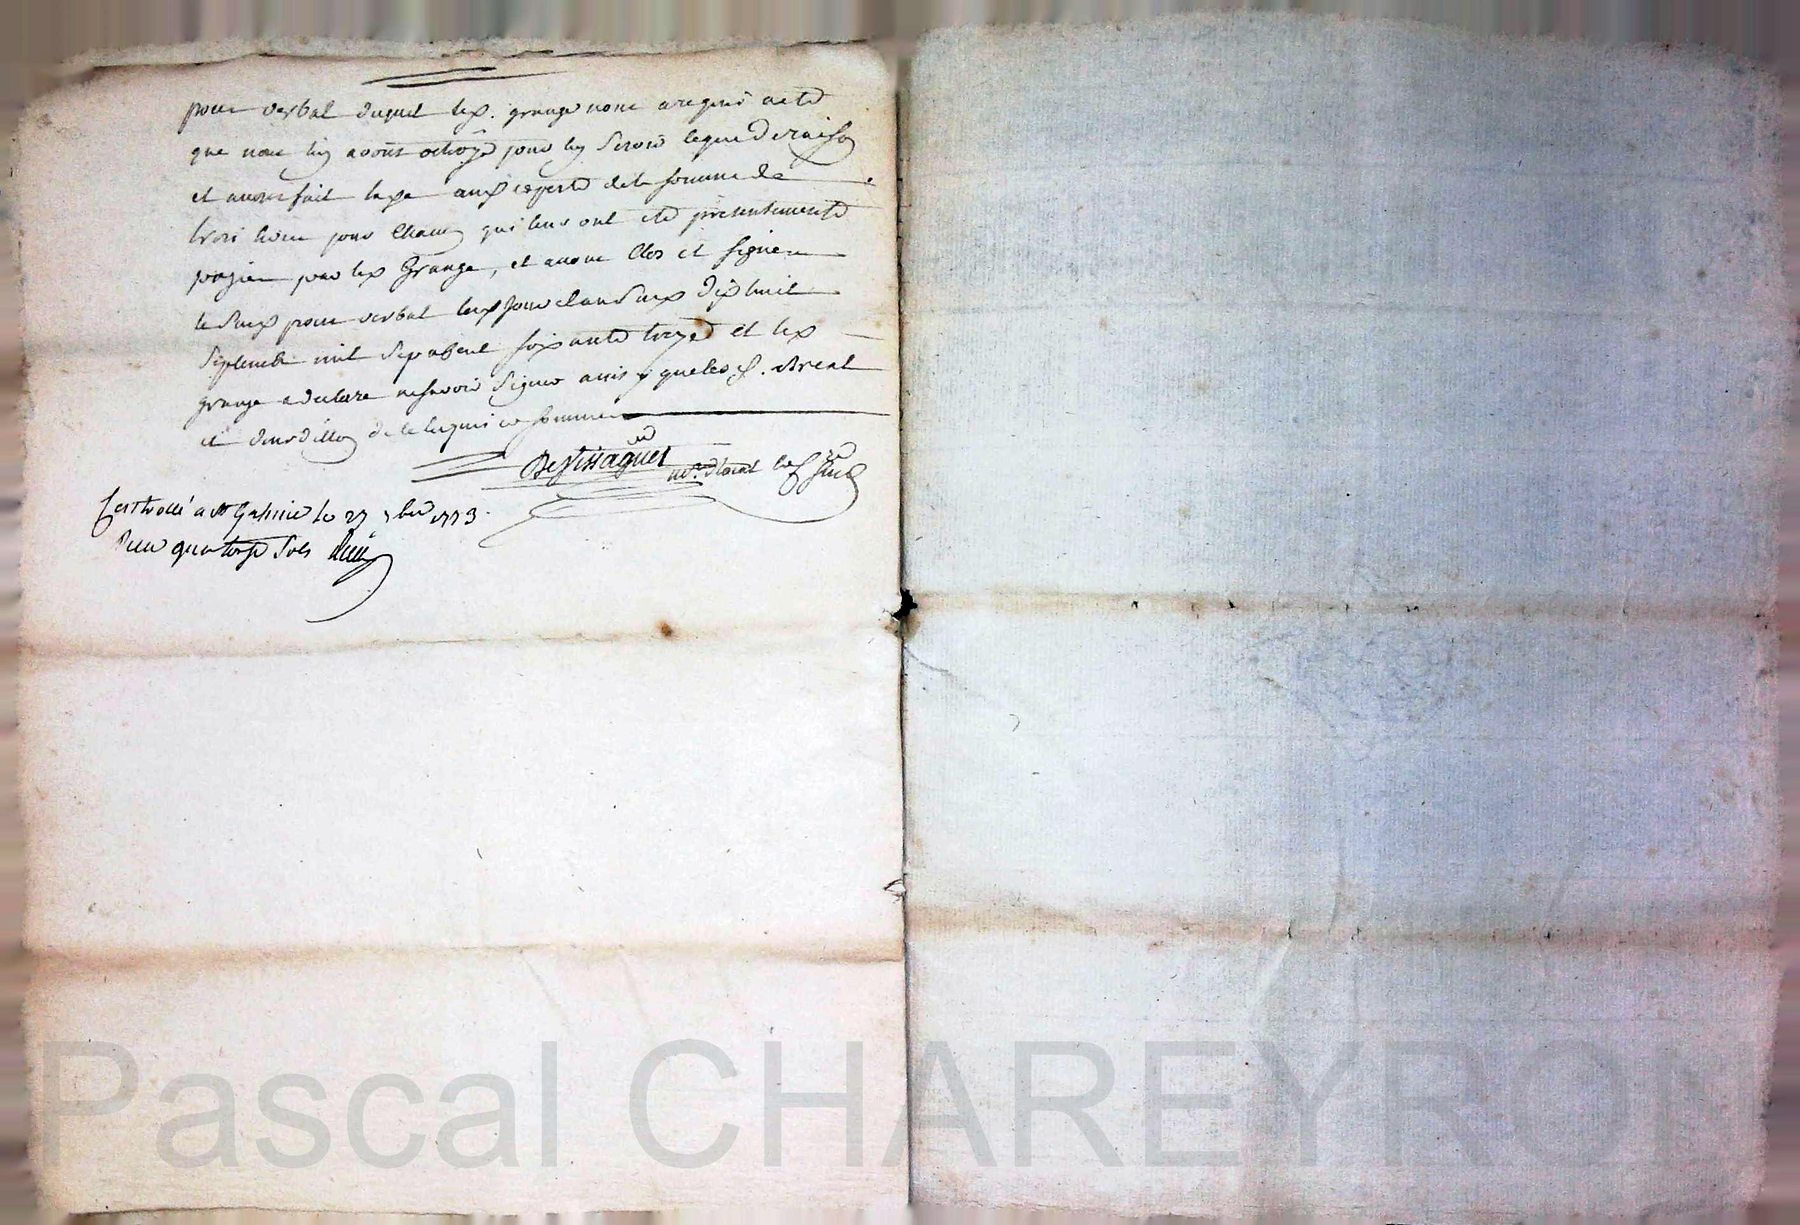 proces verbal duquel led. grange nous a requis acte
que nous luy avons octroyé pour luy servir ce que de raison
et avons fait taxe aux experts de la somme de
trois livres pour chacun qui leur ont eté presentement
payées par led grange, et avons clos et signé
le sus proces verbal led jour et an susd dix huit
septembre mil sept cent soixante treize et led
grange a declare ne scavoir signer ainsy que les s. Breat
et de ce requis et sommé
Devissaguet
Controllé a st Galmier le 27 7bre 1773
Reçu quatorze sols
Pascal CHAREYRON